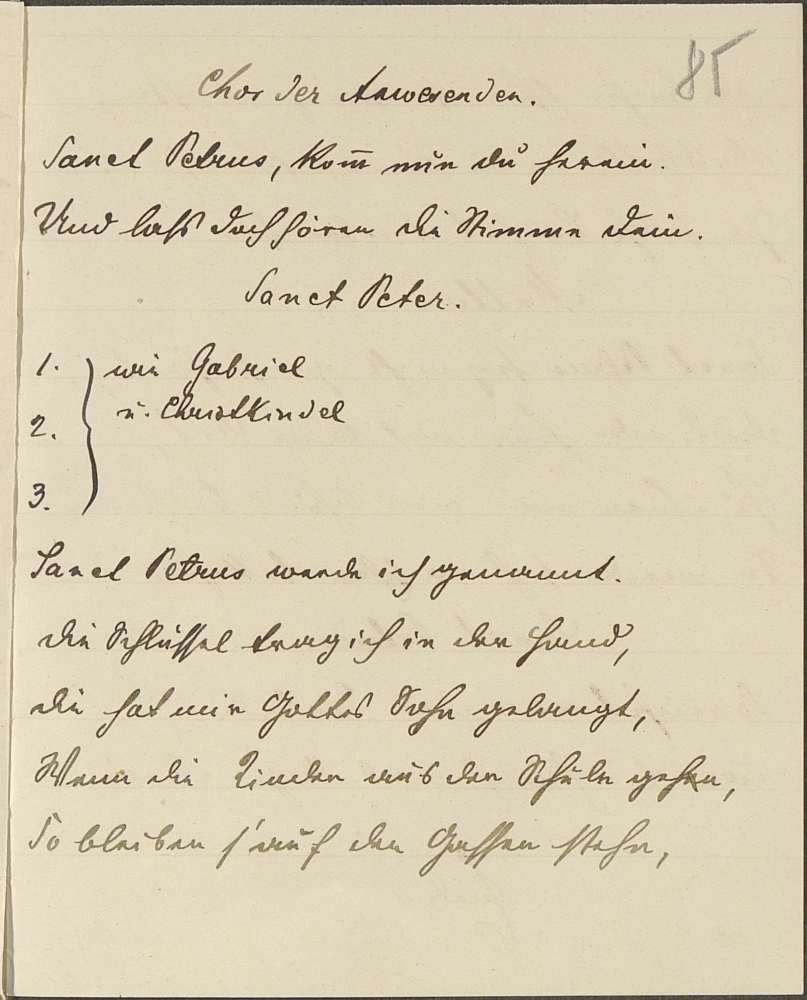 85
Chor der Anwesenden.
Sanct Petrus, kom̅ nun du herein.
Und laß doch hören die Stimme dein.
Sanct Peter.
1. } wie Gabriel
2. u. Christkindel
3.
Sanct Petrus werde ich genannt.
die Schlüssel trag ich in der Hand,
die hat mir Gottes Sohn gelangt,
Wenn die Kinder aus der Schule gehn,
So bleiben s' auf den Gassen stehn,